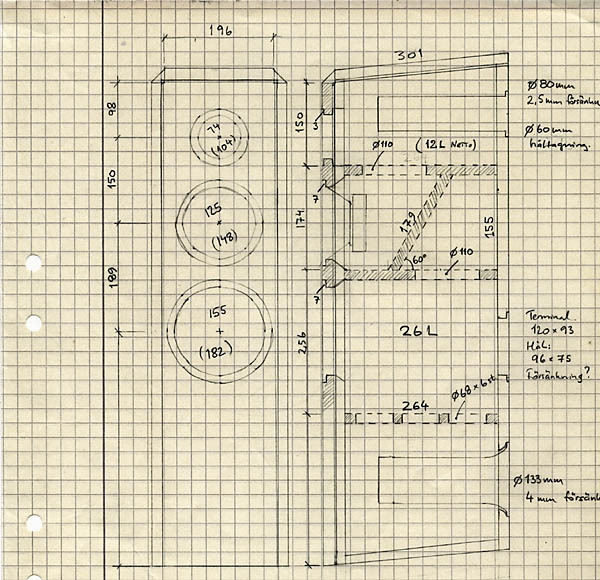 196
301
98
150
189
74
(104)
125
(148)
155
(182)
150
3
Ø110
(12L NETTO)
7
174
179
155
60°
Ø110
7
256
26L
264
Ø68 x 6 st
Ø80mm
2,5mm
Ø60mm
håltagning.
Terminal
120 x 93
Hål:
96 x 75
Försänkning?
Ø133mm
4 mm